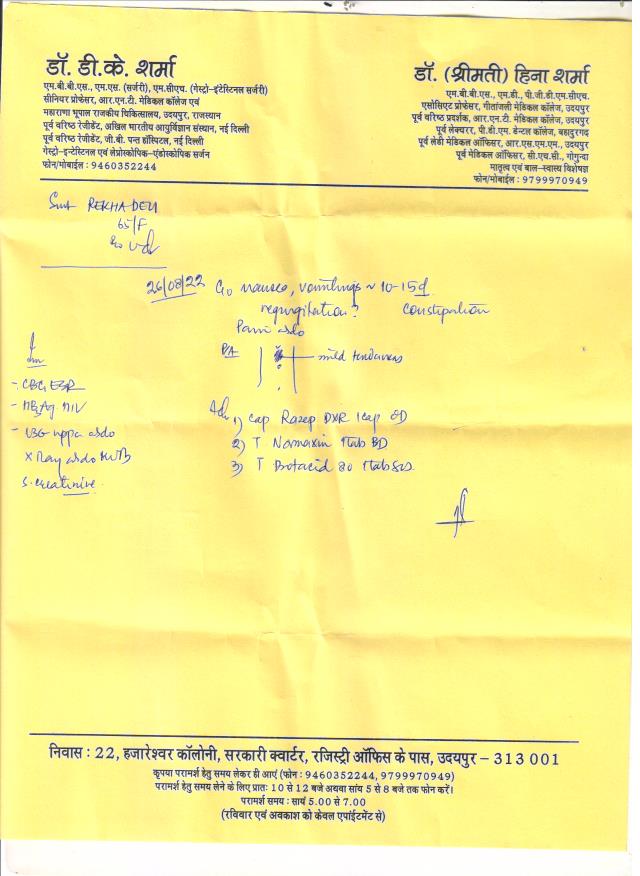 डॉ. डी.के. शर्मा
एम.बी.बी.एस., एम.एस. (सर्जरी), एम.सीएच. (गेस्ट्रो-इंटेस्टिनल सर्जरी)
सीनियर प्रोफेसर, आर.एन.टी. मेडिकल कॉलेज एवं
महाराणा भूपाल राजकीय चिकित्सालय, उदयपुर, राजस्थान
पूर्व वरिष्ठ रेजीडेंट, अखिल भारतीय आयुर्विज्ञान संस्थान, नई दिल्ली
पूर्व वरिष्ठ रेजीडेंट, जी.बी. पन्त हॉस्पिटल, नई दिल्ली
गेस्ट्रो-इन्टेस्टिनल एवं लेप्रोस्कोपिक-एंडोस्कोपिक सर्जन
फोन/मोबाईल : 9460352244
डॉ. (श्रीमती) हिना शर्मा
एम.बी.बी.एस., एम.डी., पी.जी.डी.एम.सीएच.
एसोसिएट प्रोफेसर, गीतांजली मेडिकल कॉलेज, उदयपुर
पूर्व वरिष्ठ प्रदर्शक, आर.एन.टी. मेडिकल कॉलेज, उदयपुर
पूर्व लेक्चरर, पी.डी.एम. डेन्टल कॉलेज, बहादुरगढ़
पूर्व लेडी मेडिकल ऑफिसर, आर.एस.एम.एम., उदयपुर
पूर्व मेडिकल ऑफिसर, सी.एच.सी., गोगुन्दा
मातृत्व एवं बाल-स्वास्थ्य विशेषज्ञ
फोन/मोबाईल : 9799970949
Smt REKHA DEVI
65/F
26/08/22 C/o nausea, vomitings ~ 10-15d
regurgitation? constipation
Pain abdo
P/A mild tenderness
- CBC, ESR
- HBsAg, HIV
- USG upper abdo
X Ray abdo
S. creatinine
Adv 1) Cap Razep DXR 1cap OD
2) T Normaxin 1tab BD
3) T 80 1tab
निवास : 22, हजारेश्वर कॉलोनी, सरकारी क्वार्टर, रजिस्ट्री ऑफिस के पास, उदयपुर – 313 001
कृपया परामर्श हेतु समय लेकर ही आएं (फोन : 9460352244, 9799970949)
परामर्श हेतु समय लेने के लिए प्रातः 10 से 12 बजे अथवा सांय 5 से 8 बजे तक फोन करें।
परामर्श समय : सायं 5.00 से 7.00
(रविवार एवं अवकाश को केवल एपांईटमेंट से)